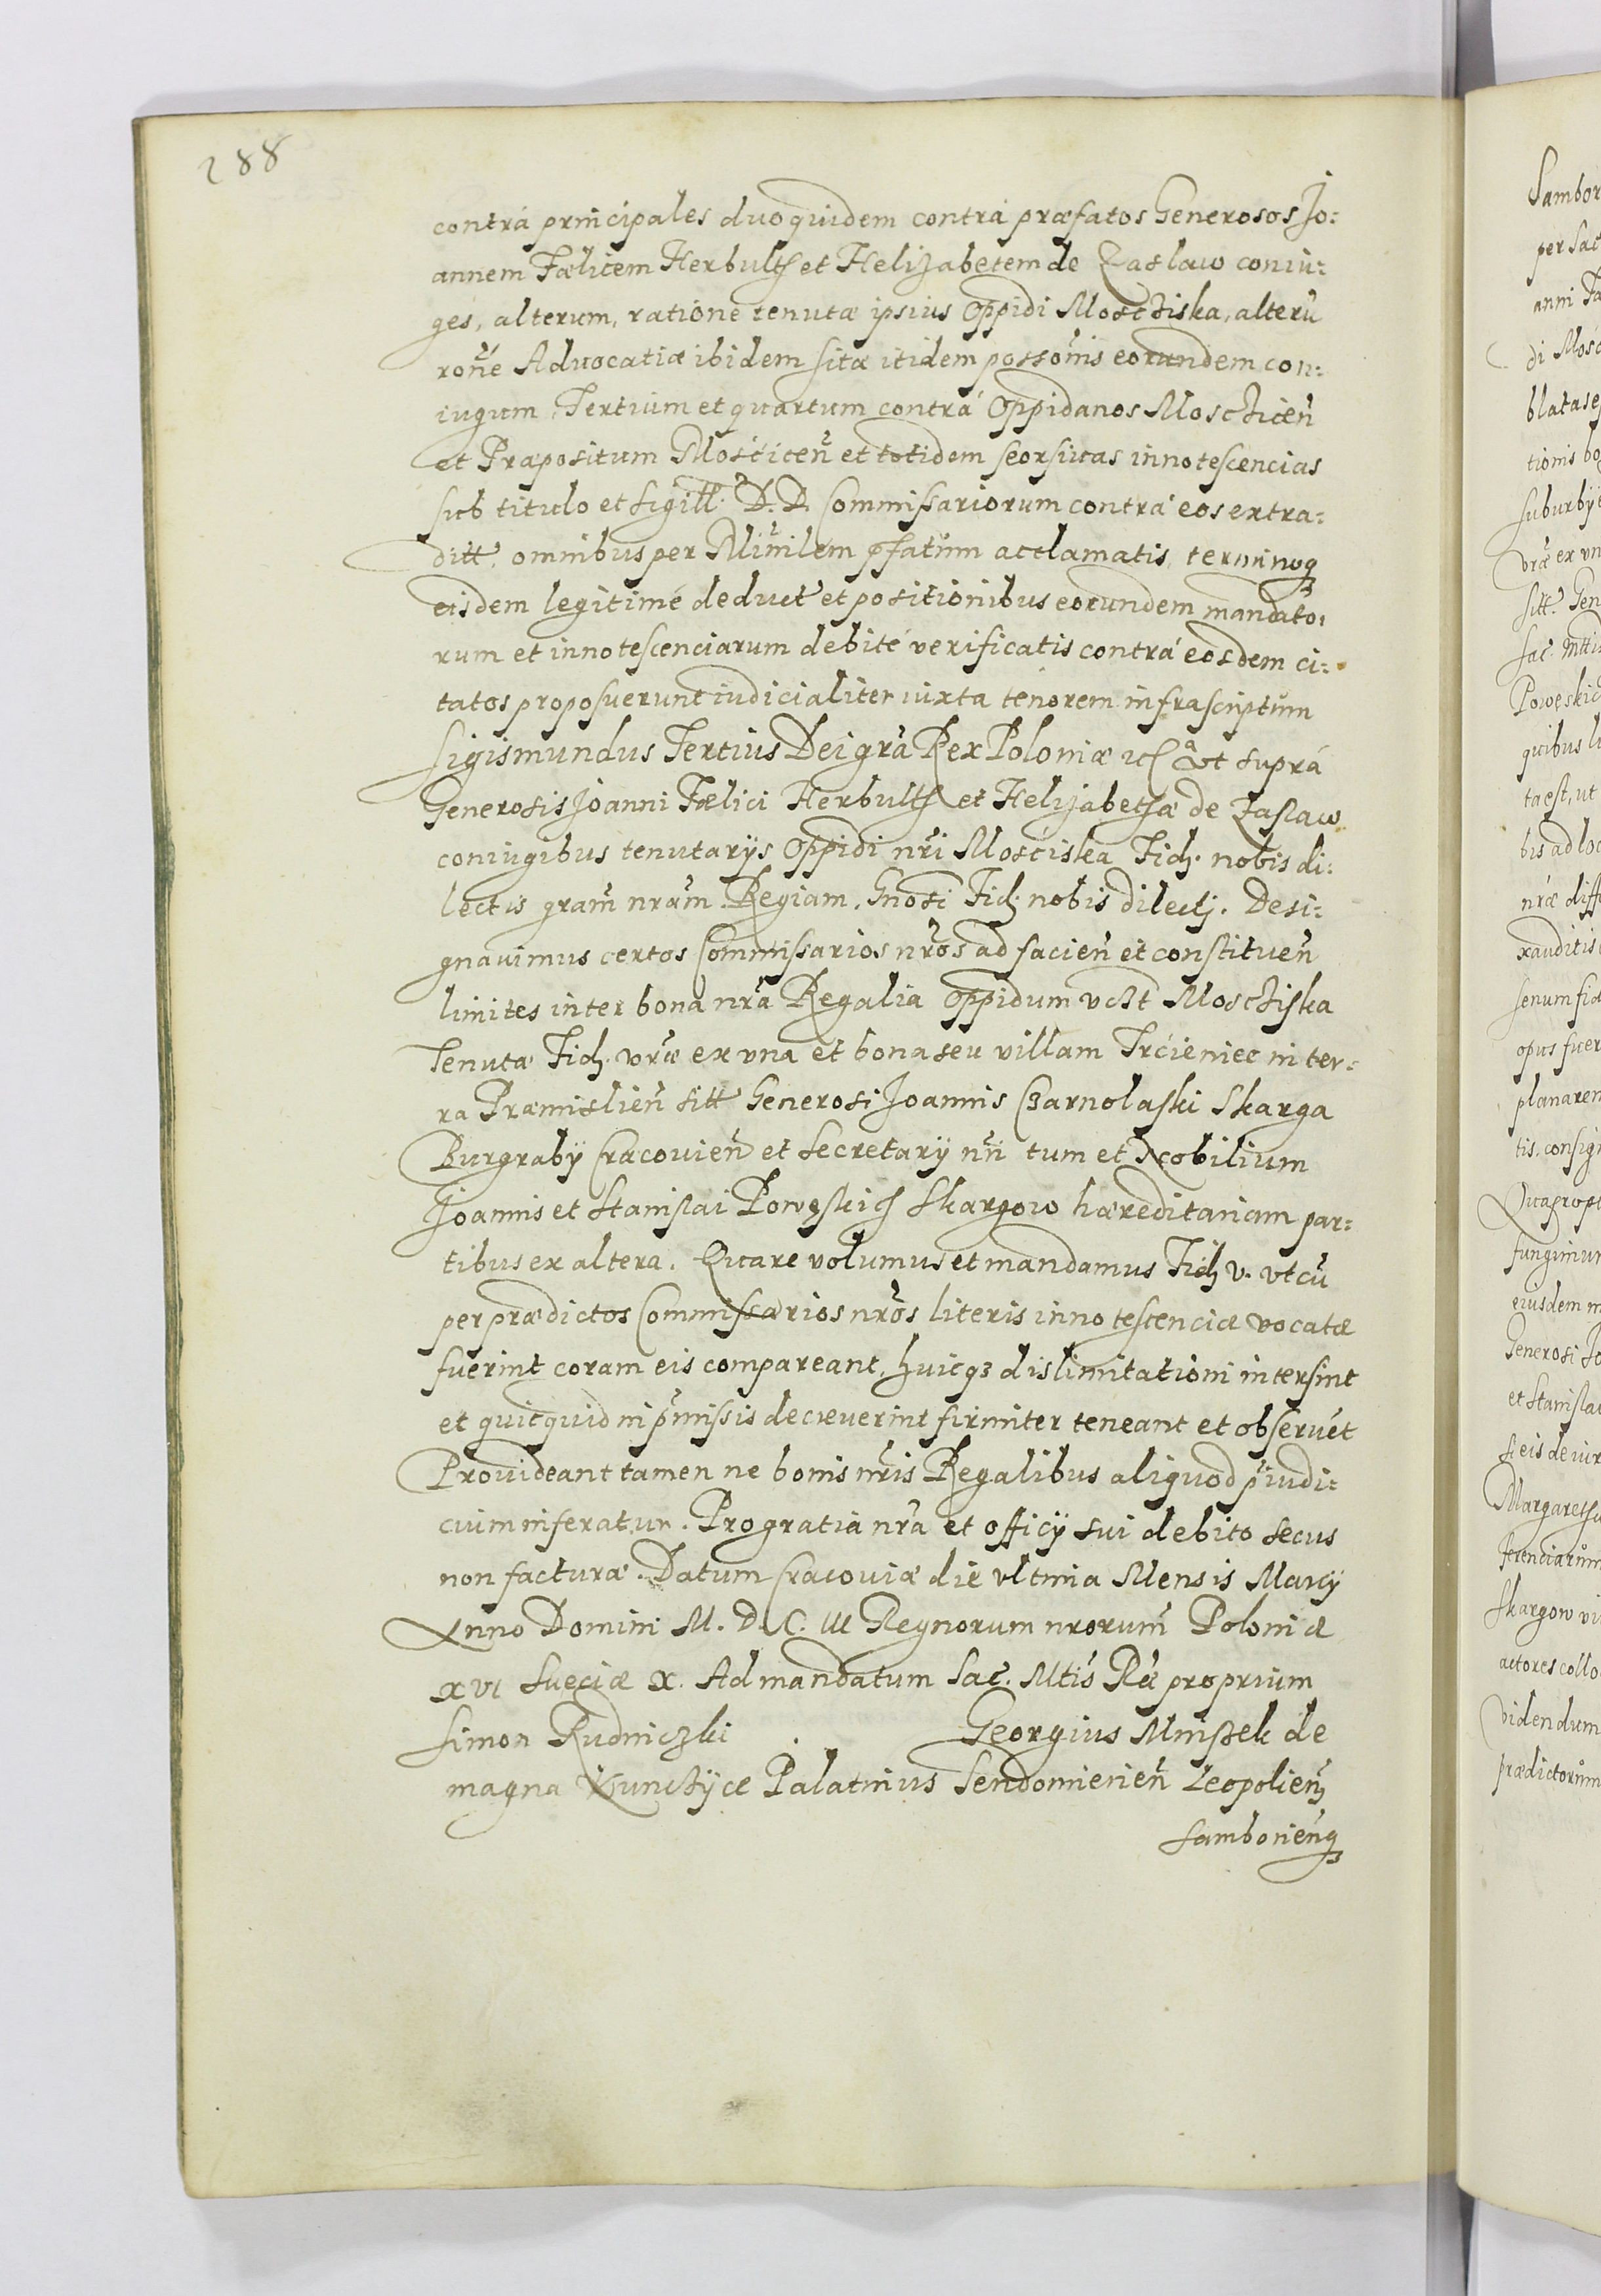 288
contrá principales duo quidem contrá præfatos Generosos Jo:
annem Fœlicem Herbulth et Helizabetem de Zaslaw coniu:
ges, alterum, ratione tenutæ ipsius Oppidi Moschiska, alterũ
rõne Advocatiæ ibidem sitæ itidem possõnis eorundem con:
iugum, Tertium et quartum contrá Oppidanos Moschiceñ
et Præpositum Mosticeñ et totidem seorsivas innotescencias
sub titulo et sigill. D. D. Commissariorum contrá eos extra:
ditt. omnibus per Minilem pfatum acclamatis, terminoq
eisdem legitimé deduct et positionibus eorundem mandato:
rum et innotescenciarum debité verificatis contrá eosdem ci:
tatos proposuerunt iudicialiter iuxta tenorem infrascriptum
Sigismundus Tertius Dei grã Rex Poloniæ etc ut suprá
Generosis Joanni Fœlici Herbulth et Helizabethæ de Zaslaw
coniugibus tenutarÿs Oppidi nri Mosciska Fidl. nobis di:
lectis gram nram Regiam. Gnosi Fidl. nobis dilecti. Desi:
gnavimus certos Commissarios nros ad facieñ et constitueñ
limites inter bona nra Regalia Oppidum vdlt Moschiska
Tenutæ Fidl. vræ ex vna et bona seu villam Trcieniec in ter:
ra Præmislieñ sitt Generosi Joannis Czarnolaski Skarga
Burgrabÿ Cracovieñ et Secretarÿ nri tum et Nobilium
Joannis et Stanislai Powęskich Skargow hæreditariam par:
tibus ex altera. Quare volumus et mandamus Fidl. v. vt cũ
per prædictos Commissarios nros literis innotescenciæ vocatæ
fuerint coram eis compareant, huicq3 dislimitationi intersint
et quicquid in pmissis decreverint firmiter teneant et observẽt
Provideant tamen ne bonis nris Regalibus aliquod piudi:
cium inferatur. Pro gratia nra et officÿ sui debito secus
non facturæ. Datum Cracoviæ die vltima Mensis Marcÿ
Anno Domini M. D. C. III Regnorum nrorum Poloniæ
XVI Sueciæ X. Ad mandatum Sac. Mtis Ræ proprium
Simon Rudniczki Georgius Mniszek de
magna Kunchÿce Palatinus Sendomirieñ Leopolieñ
Samborieñq
Sambor
per Sac
anni Fæ
di Mosc
blatase
tionis bo
suburbÿ
vræ ex vn
sitt. Gen
Sac. Mtti
Powęskic
quibus li
ta est, ut
bis ad loc
nræ diff
xauditis
senum fid
opus fuer
planaren
tis, consign
Quapropt
fungimur
eiusdem m
Generosi Jo
et Stanislai
si eis de iur
Margareth
scenciarum
Skargow vi
actores collo
videndum
prædictorum